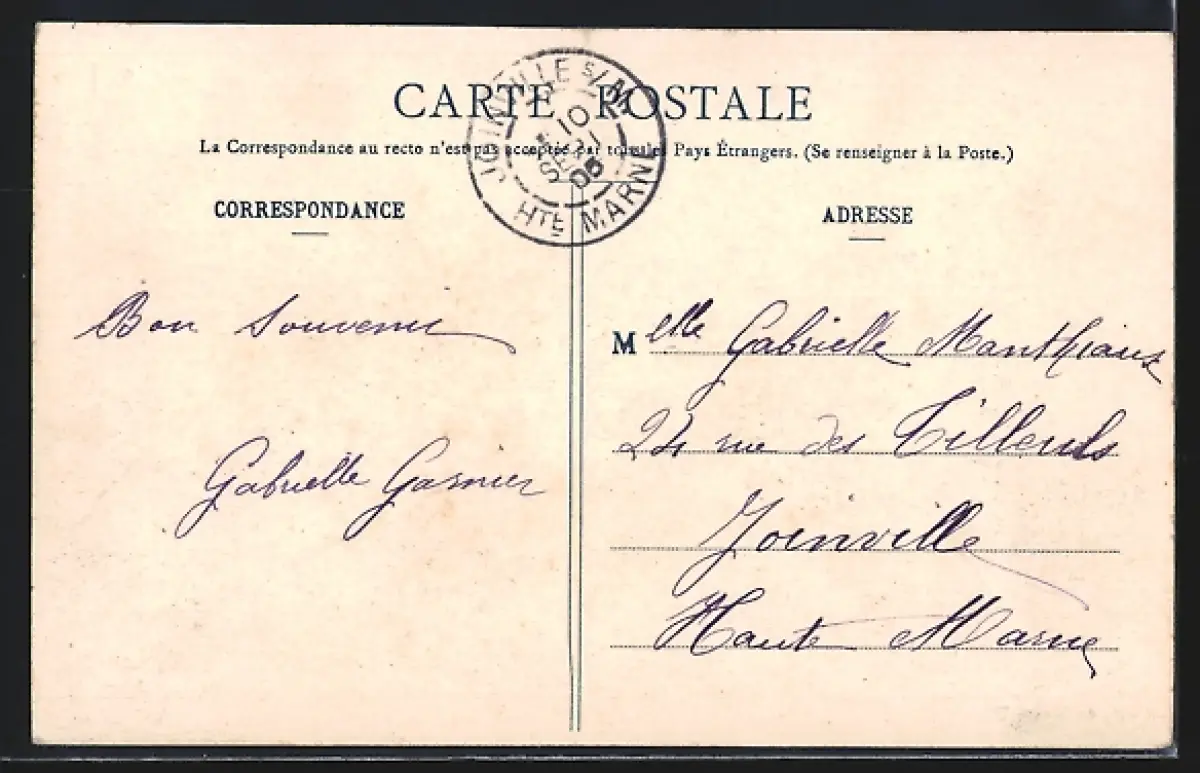 CARTE POSTALE
La Correspondance au recto n'est pas acceptée par tous les Pays Étrangers. (Se renseigner à la Poste.)
JOINVILLE S/M
10
21
SEPT
05
HTE MARNE
CORRESPONDANCE
ADRESSE
Bon Souvenir
Gabrielle Garnier
Melle Gabrielle Manthiaux
24 rue des Tilleuls
Joinville
Haute Marne